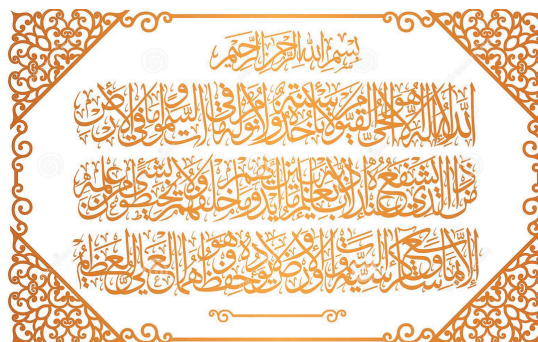 بسم الله الرحمن الرحيم
الله لا إله إلا هو الحي القيوم لا تأخذه سنة ولا نوم له ما في السموات وما في الأرض
من ذا الذي يشفع عنده إلا بإذنه يعلم ما بين أيديهم وما خلفهم ولا يحيطون بشيء من علمه
إلا بما شاء وسع كرسيه السموات والأرض ولا يؤده حفظهما وهو العلي العظيم